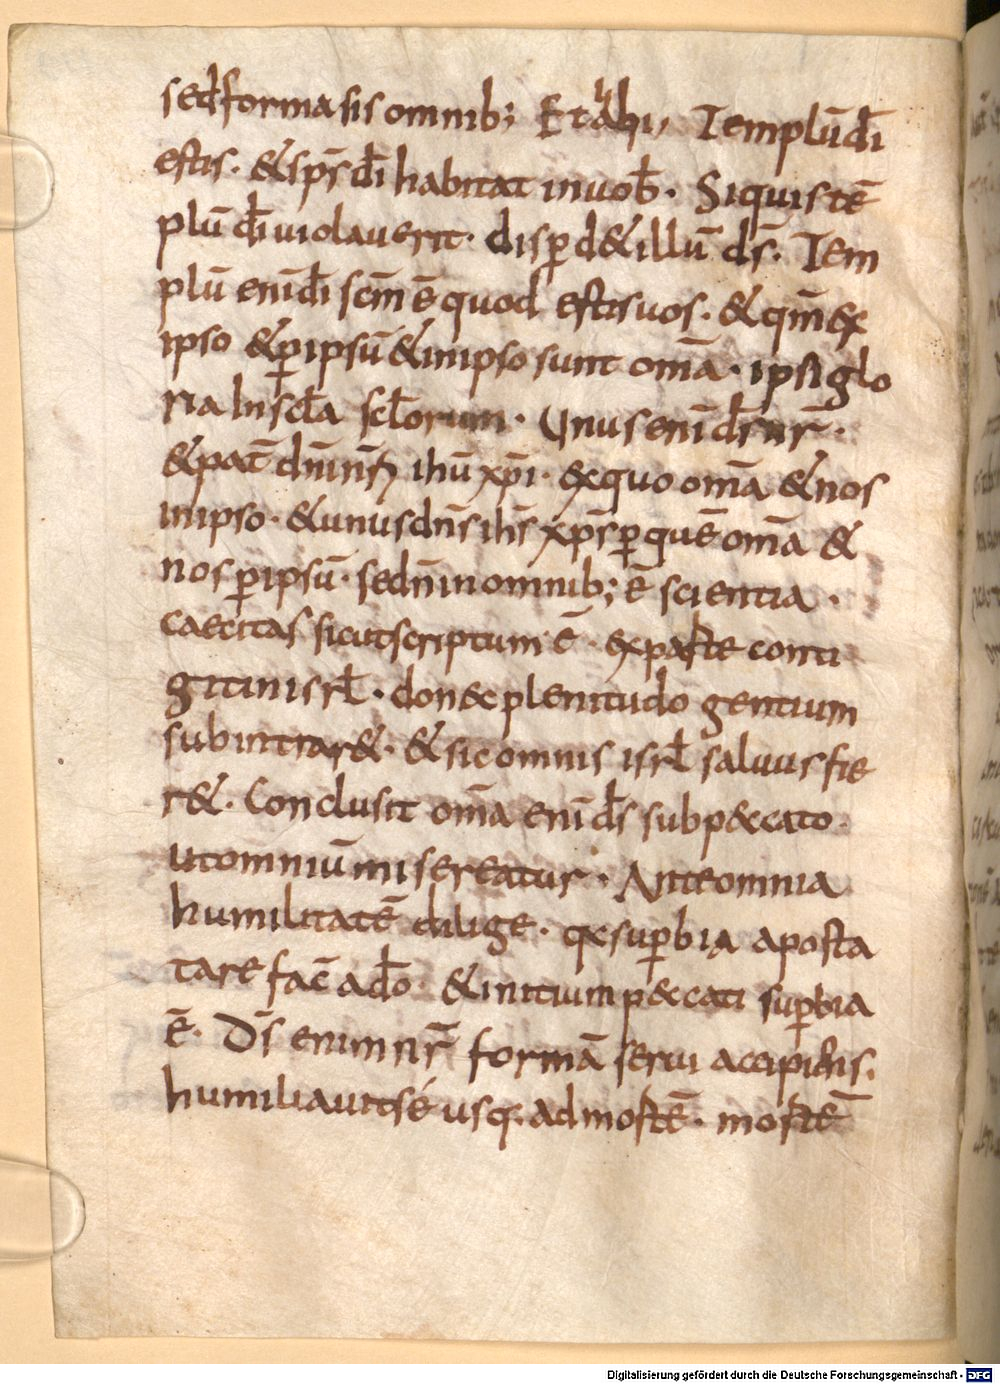 sed forma sis omnib; Et ahi, Templū dī
estis. & sps̄ dī habitat in uob̄. Siquis tē
plū dī uiolauerit. disꝑd& illū ds̄. Tem
plū enī dī scm̄ ē quod estis uos. & qm̄ ex
ipso & ꝑ ipsū & in ipso sunt om̄a. ipsi glo
ria In scl̄a scl̄orum. Unus enī ds̄ nr̄.
& pat̄ dn̄i nr̄i ihū xp̄i. ex quo om̄a & nos
in ipso. & unus dn̄s ihs̄ xps̄ ꝑ quē om̄a &
nos ꝑ ipsū. sed n̄ in omnib; ē scientia.
caecitas sicut scriptum ē. ex parte conti
git in isrl̄. donec plenitudo gentium
subintrar&. & sic omnis isrl̄ saluus fie
r&. Conclusit om̄a enī ds̄ sub peccato.
ut omniū misereatur. Ante omnia
humilitatē dilige. q; suꝑbia aposta
tare fac̄ a dō. & initium peccati suꝑbia
ē. Ds̄ enim nr̄ formā serui accipiens.
humiliauit sé usq. ad mortē. mortē
Digitalisierung gefördert durch die Deutsche Forschungsgemeinschaft - DFG